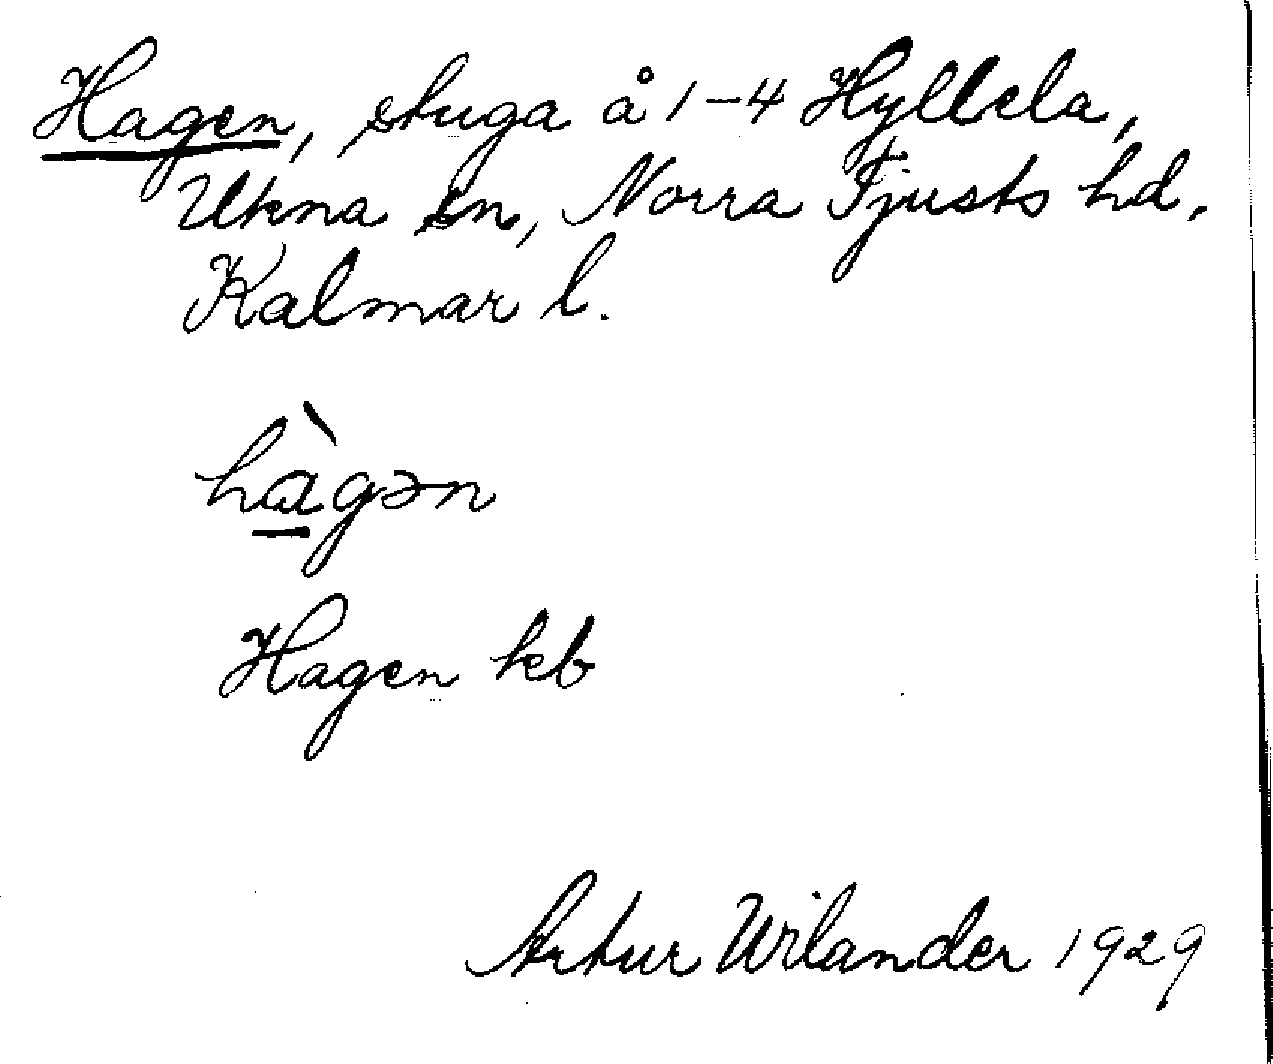 Hagen, stuga å 1-4 Hyllela,
Ukna sn, Norra Tjusts hd,
Kalmar l.
hàgən
Hagen kb
Artur Wilander 1929